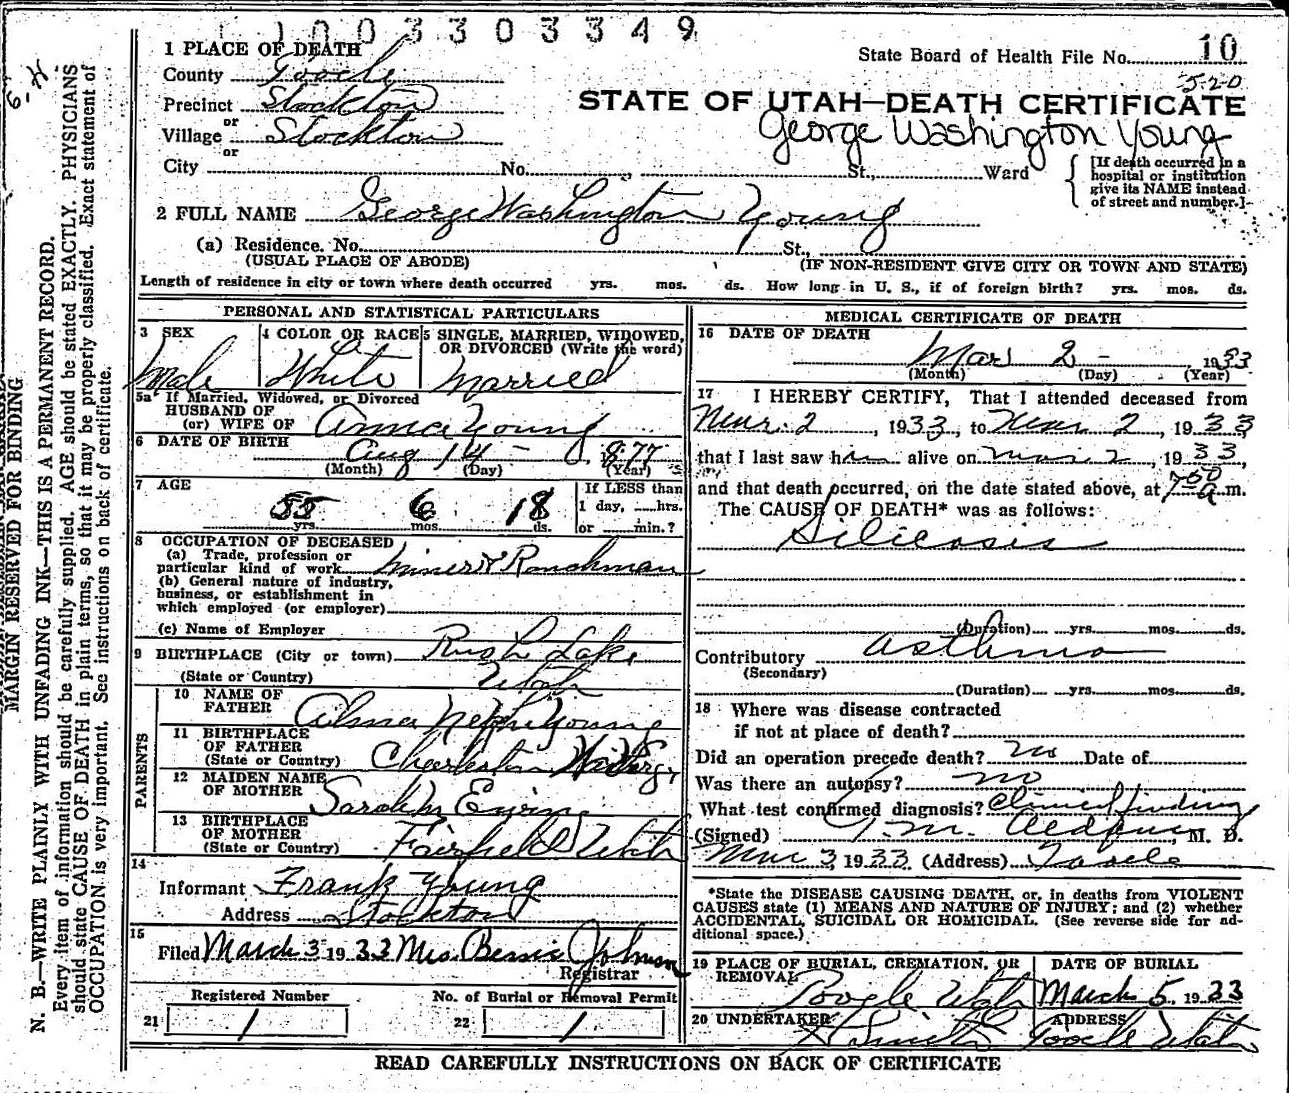 1003303349
1 PLACE OF DEATH
State Board of Health File No. 10
County Tooele
520
Precinct Stockton
STATE OF UTAH—DEATH CERTIFICATE
or
Village Stockton
George Washington Young
or
City No. St., Ward
[If death occurred in a
hospital or institution
give its NAME instead
of street and number.]
2 FULL NAME George Washington Young
(a) Residence. No. St.,
(USUAL PLACE OF ABODE)
(IF NON-RESIDENT GIVE CITY OR TOWN AND STATE)
Length of residence in city or town where death occurred yrs. mos. ds. How long in U. S., if of foreign birth? yrs. mos. ds.
PERSONAL AND STATISTICAL PARTICULARS
3 SEX
Male
4 COLOR OR RACE
White
5 SINGLE, MARRIED, WIDOWED,
OR DIVORCED (Write the word)
Married
5a If Married, Widowed, or Divorced
HUSBAND OF
(or) WIFE OF Anna Young
6 DATE OF BIRTH Aug 14 - 1877
(Month) (Day) (Year)
7 AGE
55 yrs. 6 mos. 18 ds.
If LESS than
1 day, hrs.
or min.?
8 OCCUPATION OF DECEASED
(a) Trade, profession or
particular kind of work Miner & Ranchman
(b) General nature of industry,
business, or establishment in
which employed (or employer)
(c) Name of Employer
9 BIRTHPLACE (City or town) Rush Lake
(State or Country) Utah
PARENTS
10 NAME OF
FATHER Alma Nephi Young
11 BIRTHPLACE
OF FATHER
(State or Country) Charleston
12 MAIDEN NAME
OF MOTHER Sarah Ewing
13 BIRTHPLACE
OF MOTHER
(State or Country) Fairfield Utah
14
Informant Frank Young
Address Stockton
15
Filed March 3 1933 Mrs. Bessie Johnson
Registrar
Registered Number
21 1
No. of Burial or Removal Permit
22 1
MEDICAL CERTIFICATE OF DEATH
16 DATE OF DEATH
Mar 2 - 1933
(Month) (Day) (Year)
17 I HEREBY CERTIFY, That I attended deceased from
Mar. 2, 1933, to Mar 2, 1933
that I last saw him alive on Mar 2, 1933,
and that death occurred, on the date stated above, at 7 50 a m.
The CAUSE OF DEATH* was as follows:
Silicosis
(Duration) yrs. mos. ds.
Contributory Asthma
(Secondary)
(Duration) yrs. mos. ds.
18 Where was disease contracted
if not at place of death?
Did an operation precede death? no Date of
Was there an autopsy? no
What test confirmed diagnosis? Clinical finding
(Signed) M. D.
Mar 3 1933 (Address) Tooele
*State the DISEASE CAUSING DEATH, or, in deaths from VIOLENT
CAUSES state (1) MEANS AND NATURE OF INJURY; and (2) whether
ACCIDENTAL, SUICIDAL OR HOMICIDAL. (See reverse side for ad-
ditional space.)
19 PLACE OF BURIAL, CREMATION, OR
REMOVAL
Tooele Utah
DATE OF BURIAL
March 5, 1933
20 UNDERTAKER
ADDRESS
Tooele Utah
READ CAREFULLY INSTRUCTIONS ON BACK OF CERTIFICATE
MARGIN RESERVED FOR BINDING
N. B.—WRITE PLAINLY WITH UNFADING INK—THIS IS A PERMANENT RECORD.
Every item of information should be carefully supplied. AGE should be stated EXACTLY. PHYSICIANS
should state CAUSE OF DEATH in plain terms, so that it may be properly classified. Exact statement of
OCCUPATION is very important. See instructions on back of certificate.